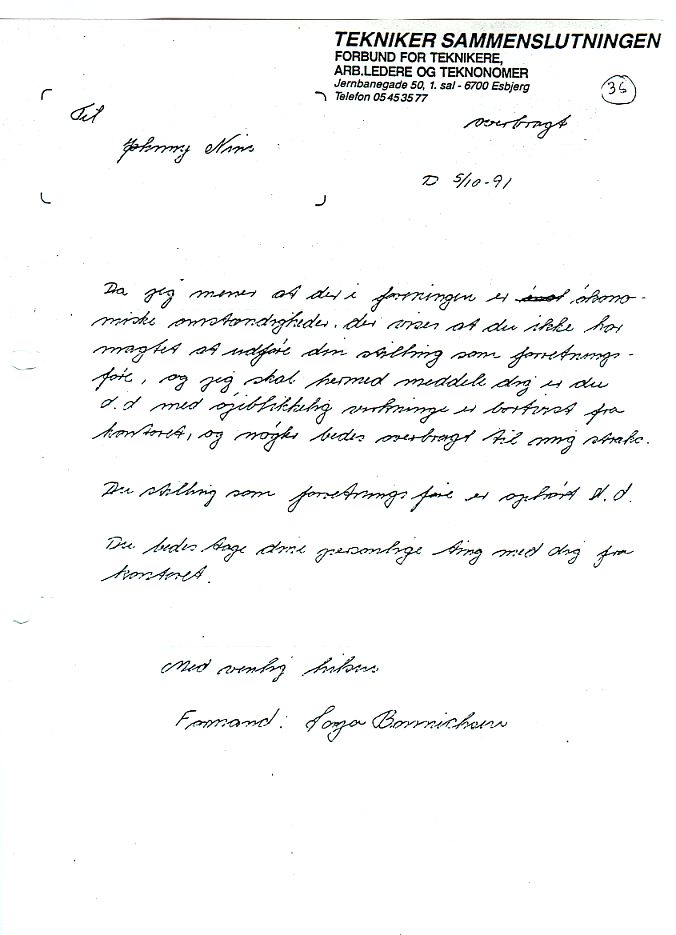 TEKNIKER SAMMENSLUTNINGEN
FORBUND FOR TEKNIKERE,
ARB.LEDERE OG TEKNONOMER
Jernbanegade 50, 1. sal - 6700 Esbjerg
Telefon 05453577
36
Til
overbragt
Johnny Nim
D 5/10-91
Da jeg mener at der i foreningen er økono-
miske omstændigheder. der viser at du ikke har
magtet at udføre din stilling som forretnings-
føre, og jeg skal hermed meddele dig er du
d.d med øjeblikkelig virkninge er bortvist fra
kontoret, og nøgle bedes overbragt til mig straks.
Din stilling som forretnings føre er ophørt d.d.
Du bedes tage dine personlige ting med dig fra
kontoret.
Med venlig hilsen
Formand: Sonja Bonnichsen